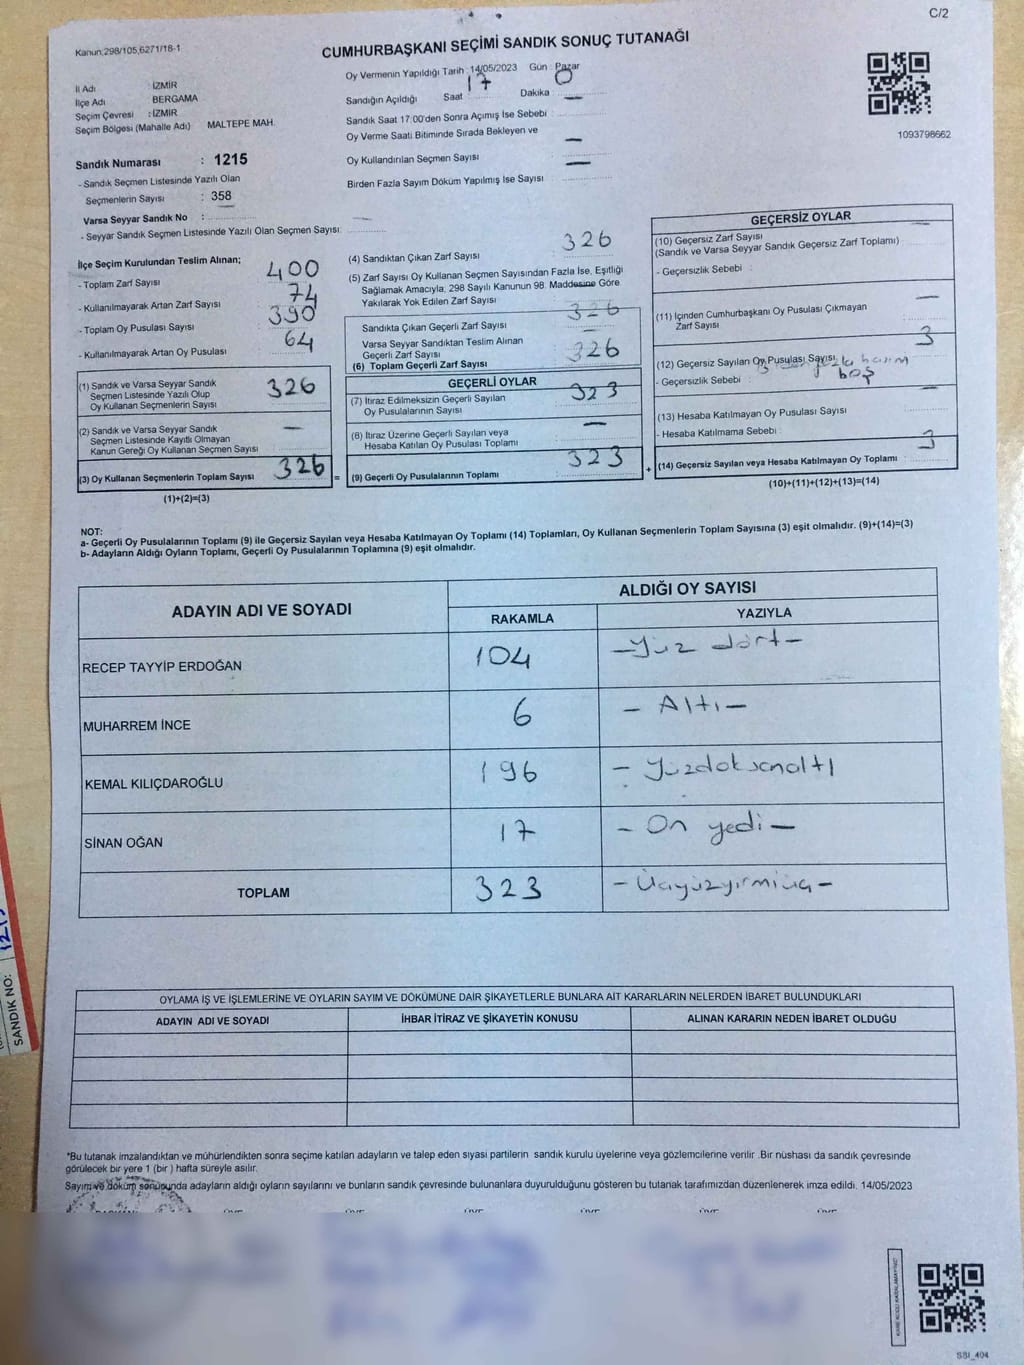 C/2
Kanun:298/105,6271/18-1
CUMHURBAŞKANI SEÇİMİ SANDIK SONUÇ TUTANAĞI
İl Adı : İZMİR
İlçe Adı : BERGAMA
Seçim Çevresi : İZMİR
Seçim Bölgesi (Mahalle Adı) MALTEPE MAH.
Oy Vermenin Yapıldığı Tarih : 14/05/2023 Gün : Pazar
Sandığın Açıldığı Saat 17 Dakika 0
Sandık Saat 17:00'den Sonra Açımış İse Sebebi : —
Oy Verme Saati Bitiminde Sırada Bekleyen ve
Oy Kullandırılan Seçmen Sayısı —
Birden Fazla Sayım Döküm Yapılmış İse Sayısı —
1093798662
Sandık Numarası : 1215
- Sandık Seçmen Listesinde Yazılı Olan
Seçmenlerin Sayısı : 358
Varsa Seyyar Sandık No :
- Seyyar Sandık Seçmen Listesinde Yazılı Olan Seçmen Sayısı: —
İlçe Seçim Kurulundan Teslim Alınan;
- Toplam Zarf Sayısı 400
- Kullanılmayarak Artan Zarf Sayısı 74
- Toplam Oy Pusulası Sayısı 390
- Kullanılmayarak Artan Oy Pusulası 64
(1) Sandık ve Varsa Seyyar Sandık
Seçmen Listesinde Yazılı Olup
Oy Kullanan Seçmenlerin Sayısı 326
(2) Sandık ve Varsa Seyyar Sandık
Seçmen Listesinde Kayıtlı Olmayan
Kanun Gereği Oy Kullanan Seçmen Sayısı —
(3) Oy Kullanan Seçmenlerin Toplam Sayısı 326
(1)+(2)=(3)
(4) Sandıktan Çıkan Zarf Sayısı 326
(5) Zarf Sayısı Oy Kullanan Seçmen Sayısından Fazla İse, Eşitliği
Sağlamak Amacıyla, 298 Sayılı Kanunun 98. Maddesine Göre
Yakılarak Yok Edilen Zarf Sayısı —
Sandıkta Çıkan Geçerli Zarf Sayısı 326
Varsa Seyyar Sandıktan Teslim Alınan
Geçerli Zarf Sayısı
(6) Toplam Geçerli Zarf Sayısı 326
GEÇERLİ OYLAR
(7) İtiraz Edilmeksizin Geçerli Sayılan
Oy Pusulalarının Sayısı 323
(8) İtiraz Üzerine Geçerli Sayılan veya
Hesaba Katılan Oy Pusulası Toplamı —
= (9) Geçerli Oy Pusulalarının Toplamı 323 +
GEÇERSİZ OYLAR
(10) Geçersiz Zarf Sayısı —
(Sandık ve Varsa Seyyar Sandık Geçersiz Zarf Toplamı)
- Geçersizlik Sebebi :
(11) İçinden Cumhurbaşkanı Oy Pusulası Çıkmayan
Zarf Sayısı —
(12) Geçersiz Sayılan Oy Pusulası Sayısı 3
- Geçersizlik Sebebi : boş
(13) Hesaba Katılmayan Oy Pusulası Sayısı —
- Hesaba Katılmama Sebebi :
(14) Geçersiz Sayılan veya Hesaba Katılmayan Oy Toplamı 3
(10)+(11)+(12)+(13)=(14)
NOT:
a- Geçerli Oy Pusulalarının Toplamı (9) ile Geçersiz Sayılan veya Hesaba Katılmayan Oy Toplamı (14) Toplamları, Oy Kullanan Seçmenlerin Toplam Sayısına (3) eşit olmalıdır. (9)+(14)=(3)
b- Adayların Aldığı Oyların Toplamı, Geçerli Oy Pusulalarının Toplamına (9) eşit olmalıdır.
ADAYIN ADI VE SOYADI ALDIĞI OY SAYISI
RAKAMLA YAZIYLA
RECEP TAYYİP ERDOĞAN 104 —Yüz dört—
MUHARREM İNCE 6 — Altı —
KEMAL KILIÇDAROĞLU 196 — Yüzdoksanaltı
SİNAN OĞAN 17 — On yedi —
TOPLAM 323 — Üçyüzyirmiüç —
OYLAMA İŞ VE İŞLEMLERİNE VE OYLARIN SAYIM VE DÖKÜMÜNE DAİR ŞİKAYETLERLE BUNLARA AİT KARARLARIN NELERDEN İBARET BULUNDUKLARI
ADAYIN ADI VE SOYADI İHBAR İTİRAZ VE ŞİKAYETİN KONUSU ALINAN KARARIN NEDEN İBARET OLDUĞU
*Bu tutanak imzalandıktan ve mühürlendikten sonra seçime katılan adayların ve talep eden siyasi partilerin sandık kurulu üyelerine veya gözlemcilerine verilir .Bir nüshası da sandık çevresinde
görülecek bir yere 1 (bir ) hafta süreyle asılır.
Sayım ve döküm sonucunda adayların aldığı oyların sayılarını ve bunların sandık çevresinde bulunanlara duyurulduğunu gösteren bu tutanak tarafımızdan düzenlenerek imza edildi. 14/05/2023
SANDIK NO: 1215
SSI_404